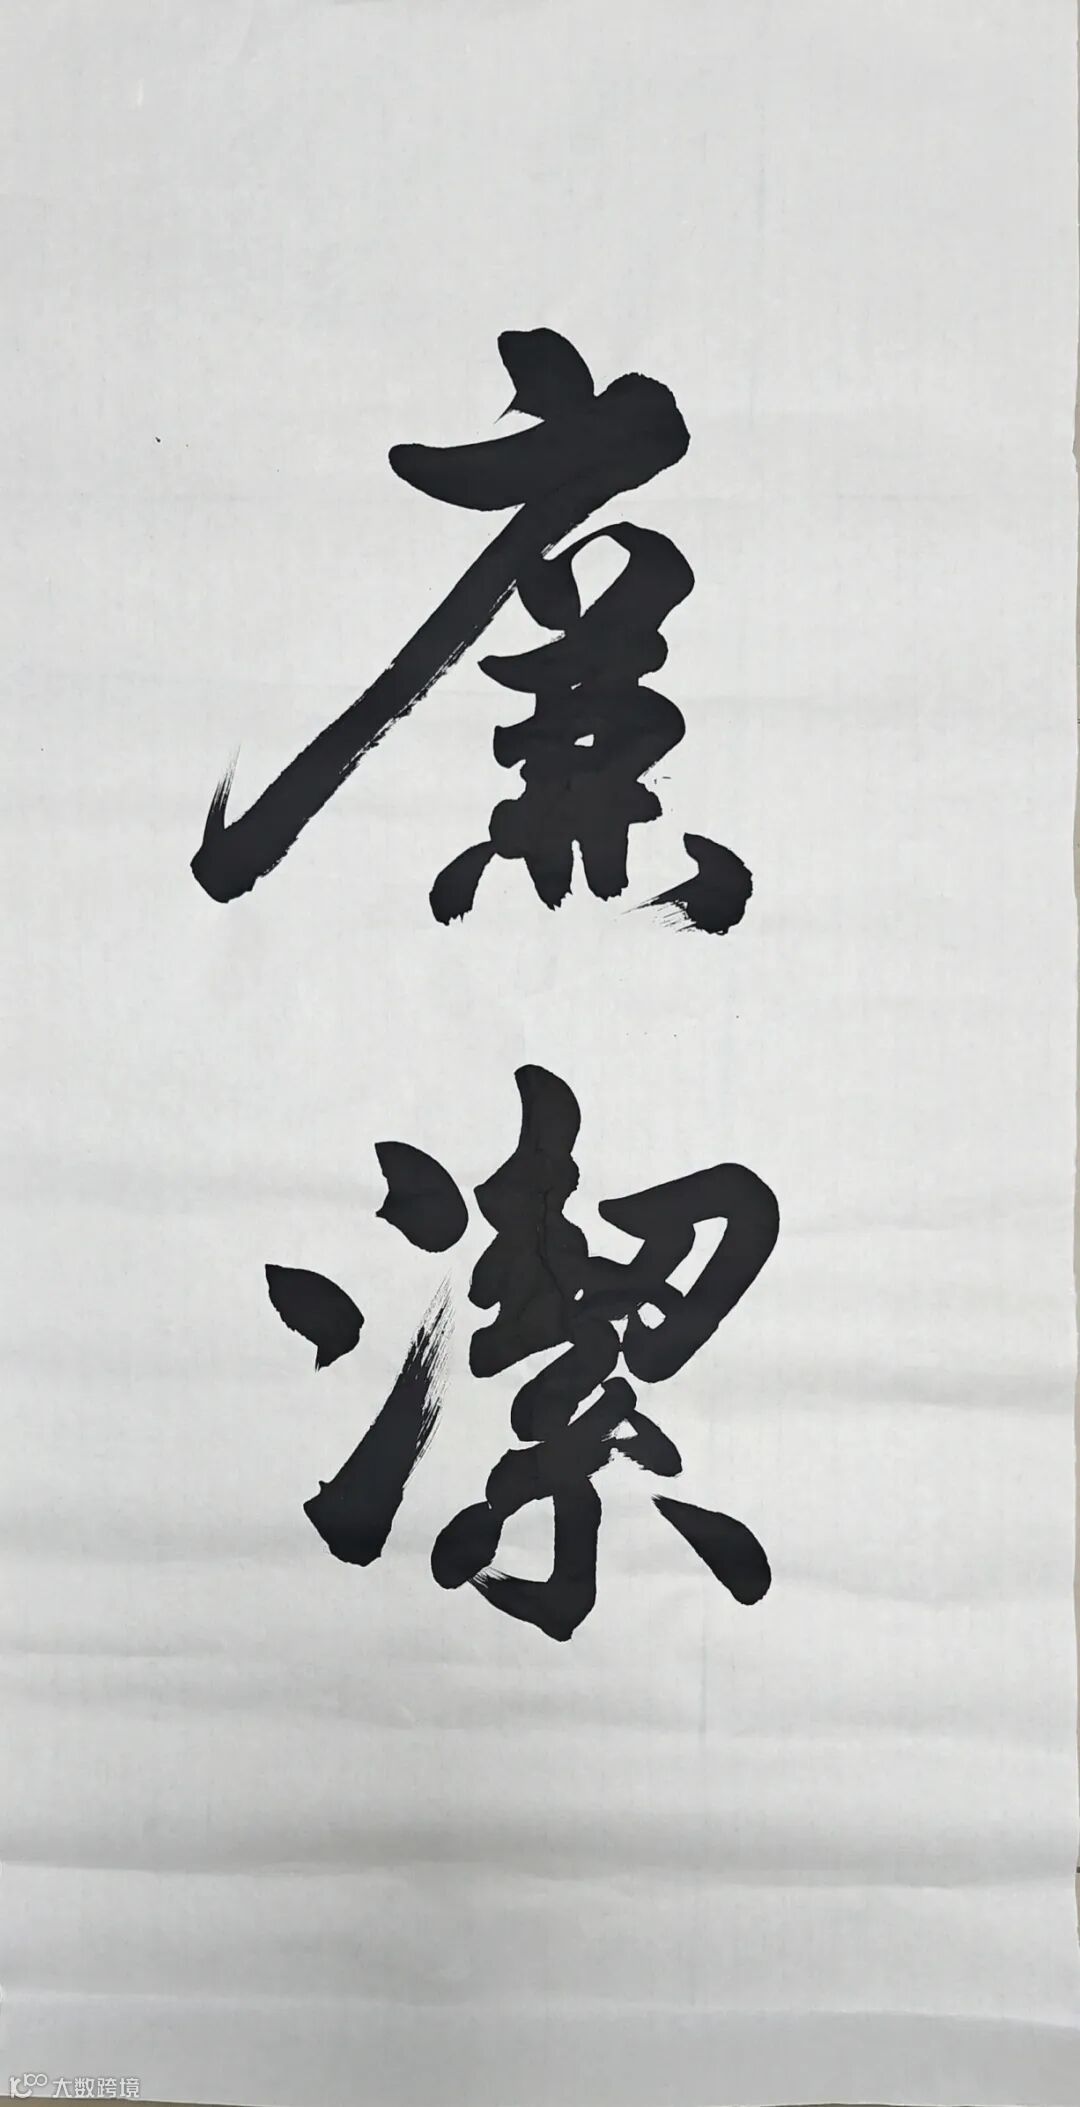 廉潔
大数跨境